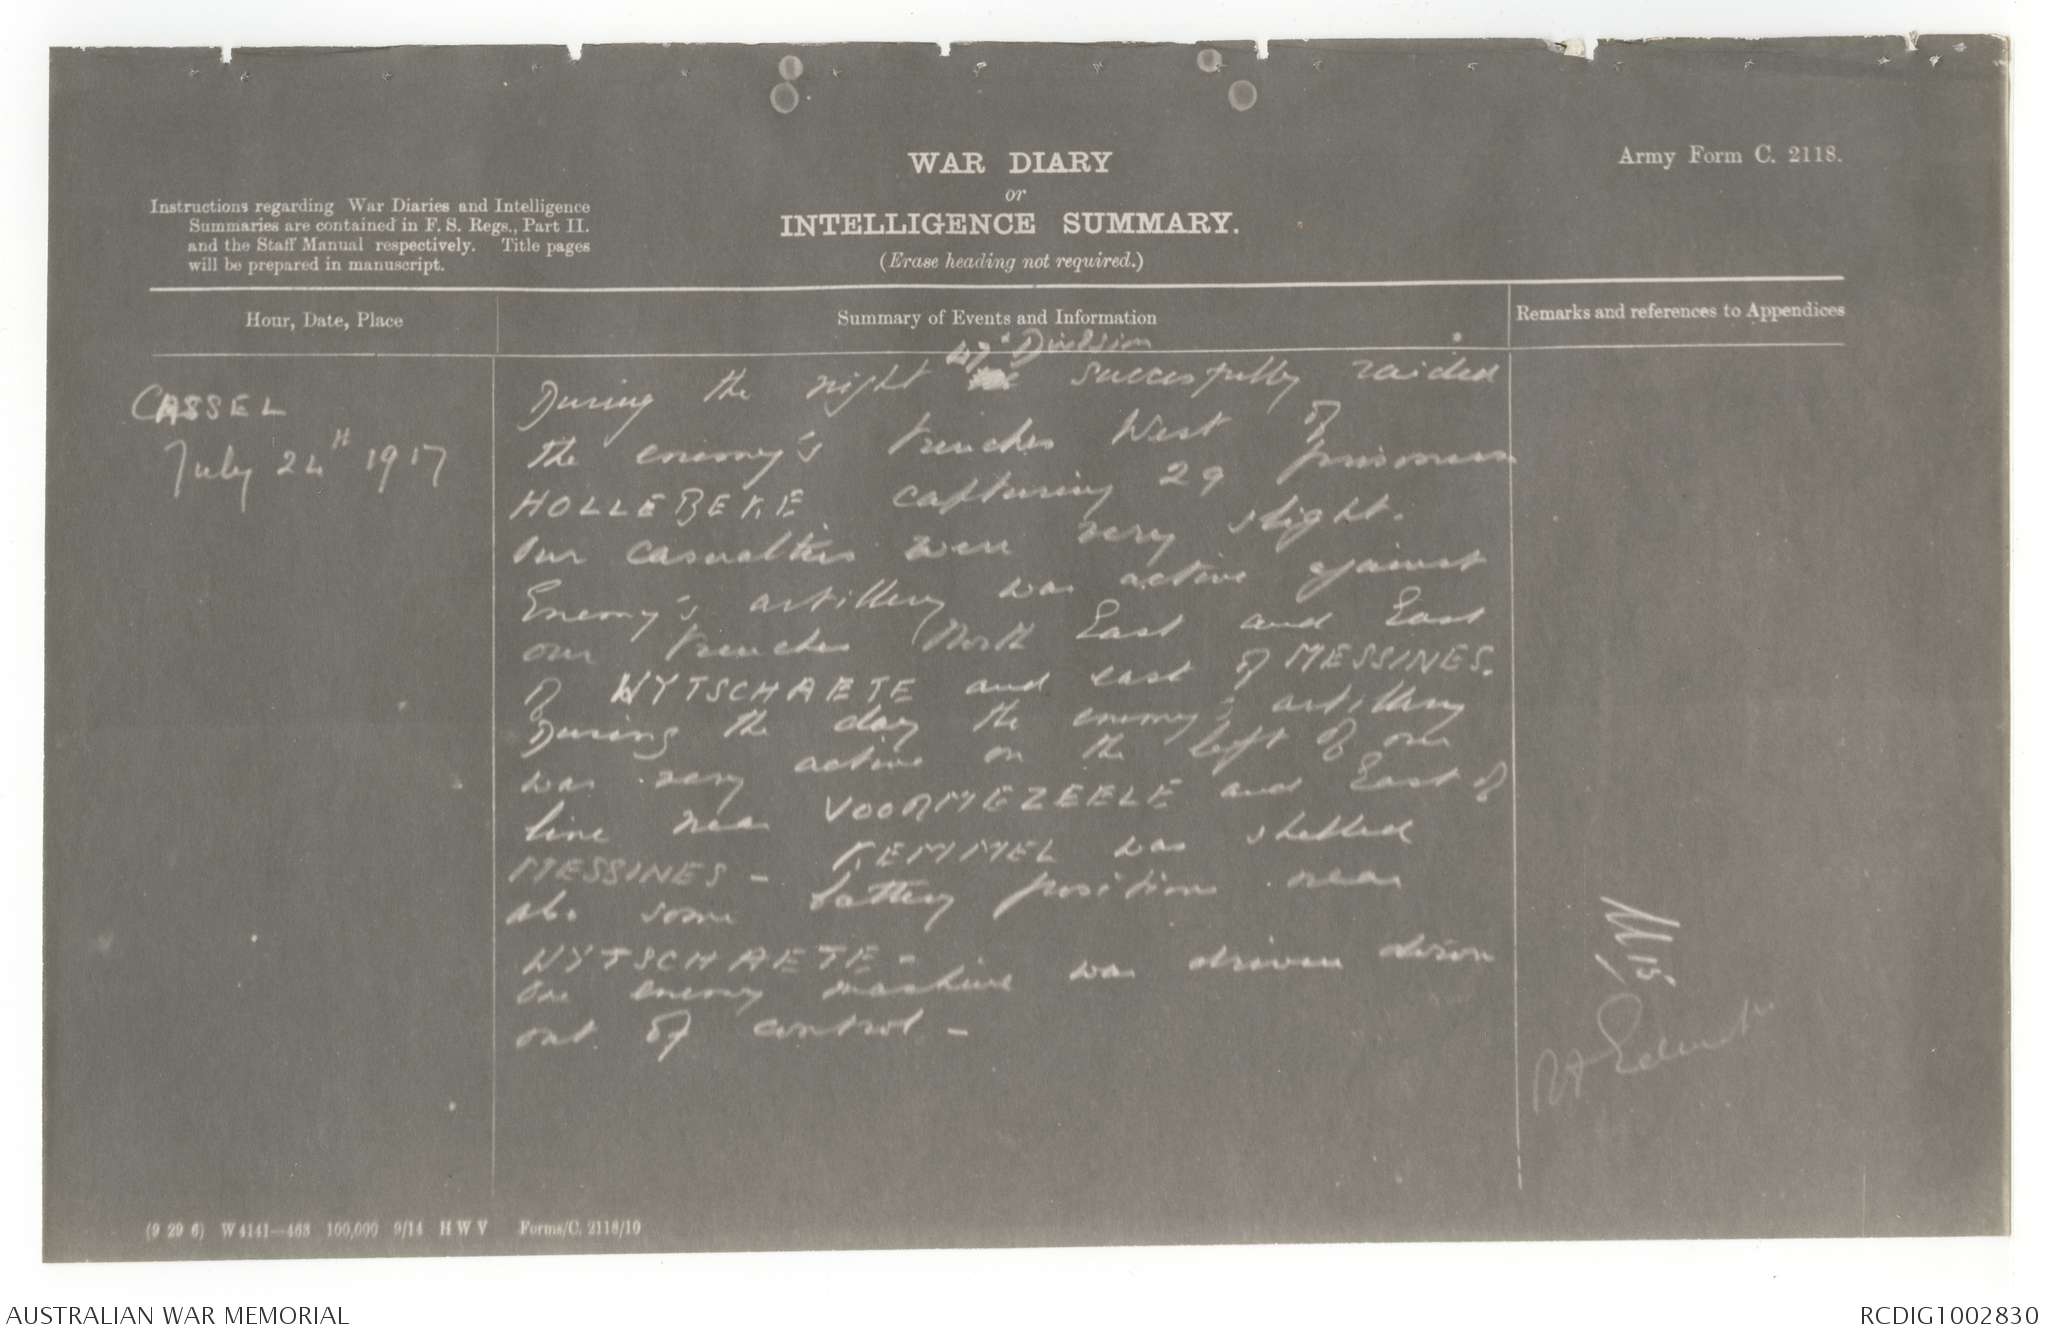 WAR DIARY
or
INTELLIGENCE SUMMARY.
(Erase heading not required.)
Army Form C. 2118.
Instructions regarding War Diaries and Intelligence
Summaries are contained in F. S. Regs., Part II.
and the Staff Manual respectively. Title pages
will be prepared in manuscript.
Hour, Date, Place
Summary of Events and Information
Remarks and references to Appendices
CASSEL
July 24th 1917
47th Division
During the night successfully raided
the enemy's trenches West of
HOLLEBEKE capturing 29 prisoners
Our casualties were very slight.
Enemy's artillery was active against
our trenches North East and East
of WYTSCHAETE and east of MESSINES.
During the day the enemy's artillery
was very active on the left of our
line near VOORMEZEELE and East of
MESSINES - KEMMEL was shelled
also some battery positions near
WYTSCHAETE -
One enemy machine was driven down
out of control -
(9 29 6) W 4141—463 100,000 9/14 H W V Forms/C. 2118/10
AUSTRALIAN WAR MEMORIAL
RCDIG1002830